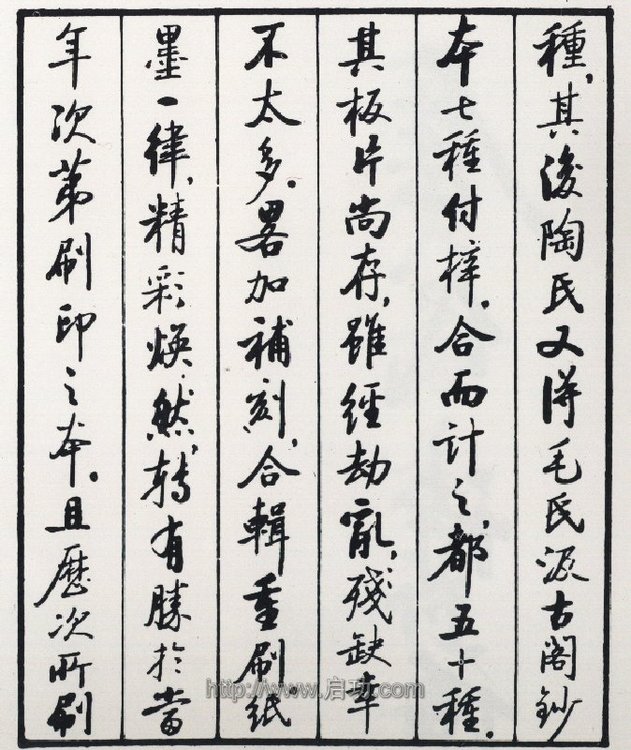 種，其後陶氏又得毛氏汲古閣鈔
本七種付梓。合而計之，都五十種。
其板片尚存，雖經劫亂，殘缺幸
不太多。畧加補刻，合輯重刷。紙
墨一律，精彩煥然，轉有勝於當
年次第刷印之本。且歷次所刷
http://www.启功.com